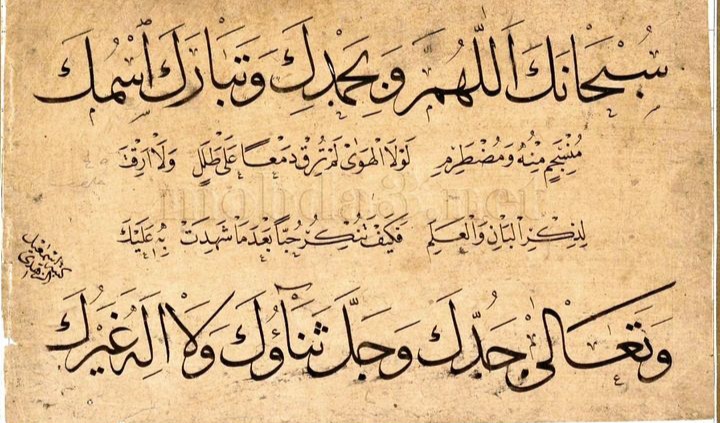 سُبْحَانَكَ اَللّٰهُمَّ وَبِحَمْدِكَ وَتَبَارَكَ ٱسْمُكَ
مُنْسَجِمٍ مِنْهُ وَمُضْطَرِمِ لَوْلَا الْهَوٰى لَمْ تُرِقْ دَمْعًا عَلٰى طَلَلٍ وَلَا اَرِقْتَ
mohdag.net
لِذِكْرِ الْبَانِ وَالْعَلَمِ فَكَيْفَ تُنْكِرُ حُبًّا بَعْدَمَا شَهِدَتْ بِهِ عَلَيْكَ
وَتَعَالٰى جَدُّكَ وَجَلَّ ثَنَاؤُكَ وَلَا اِلٰهَ غَيْرُكَ